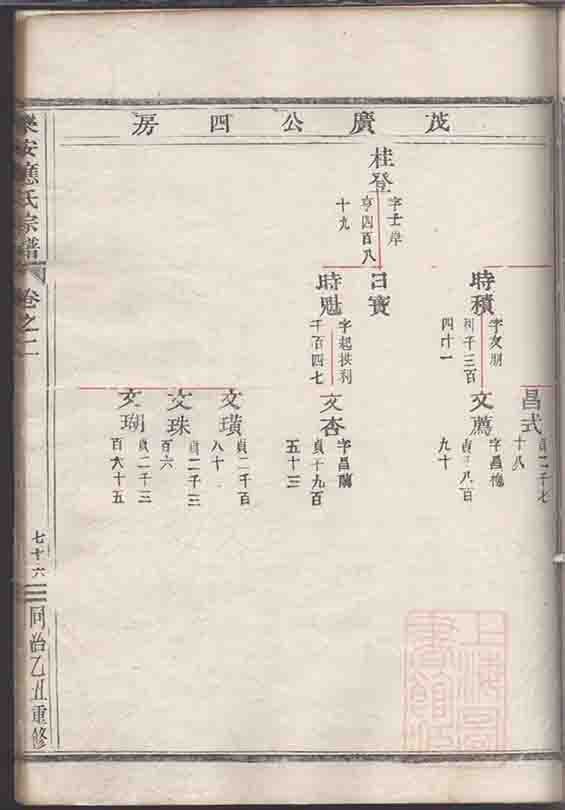 茂廣公四房
桂登
字士岸
亨四百八
十九
時積
字友朋
利千三百
四十一
日寶
時魁
字起拱利
千百四七
昌式
貞二千七
十八
文薦
字昌梅
貞千八百
九十
文杏
字昌蘭
貞千九百
五十三
文璜
貞二千百
八十
文珠
貞二千三
百六
文瑚
貞二千三
百六十五
樂安應氏宗譜
卷之二
七十六
同治乙丑重修
上海圖
書館